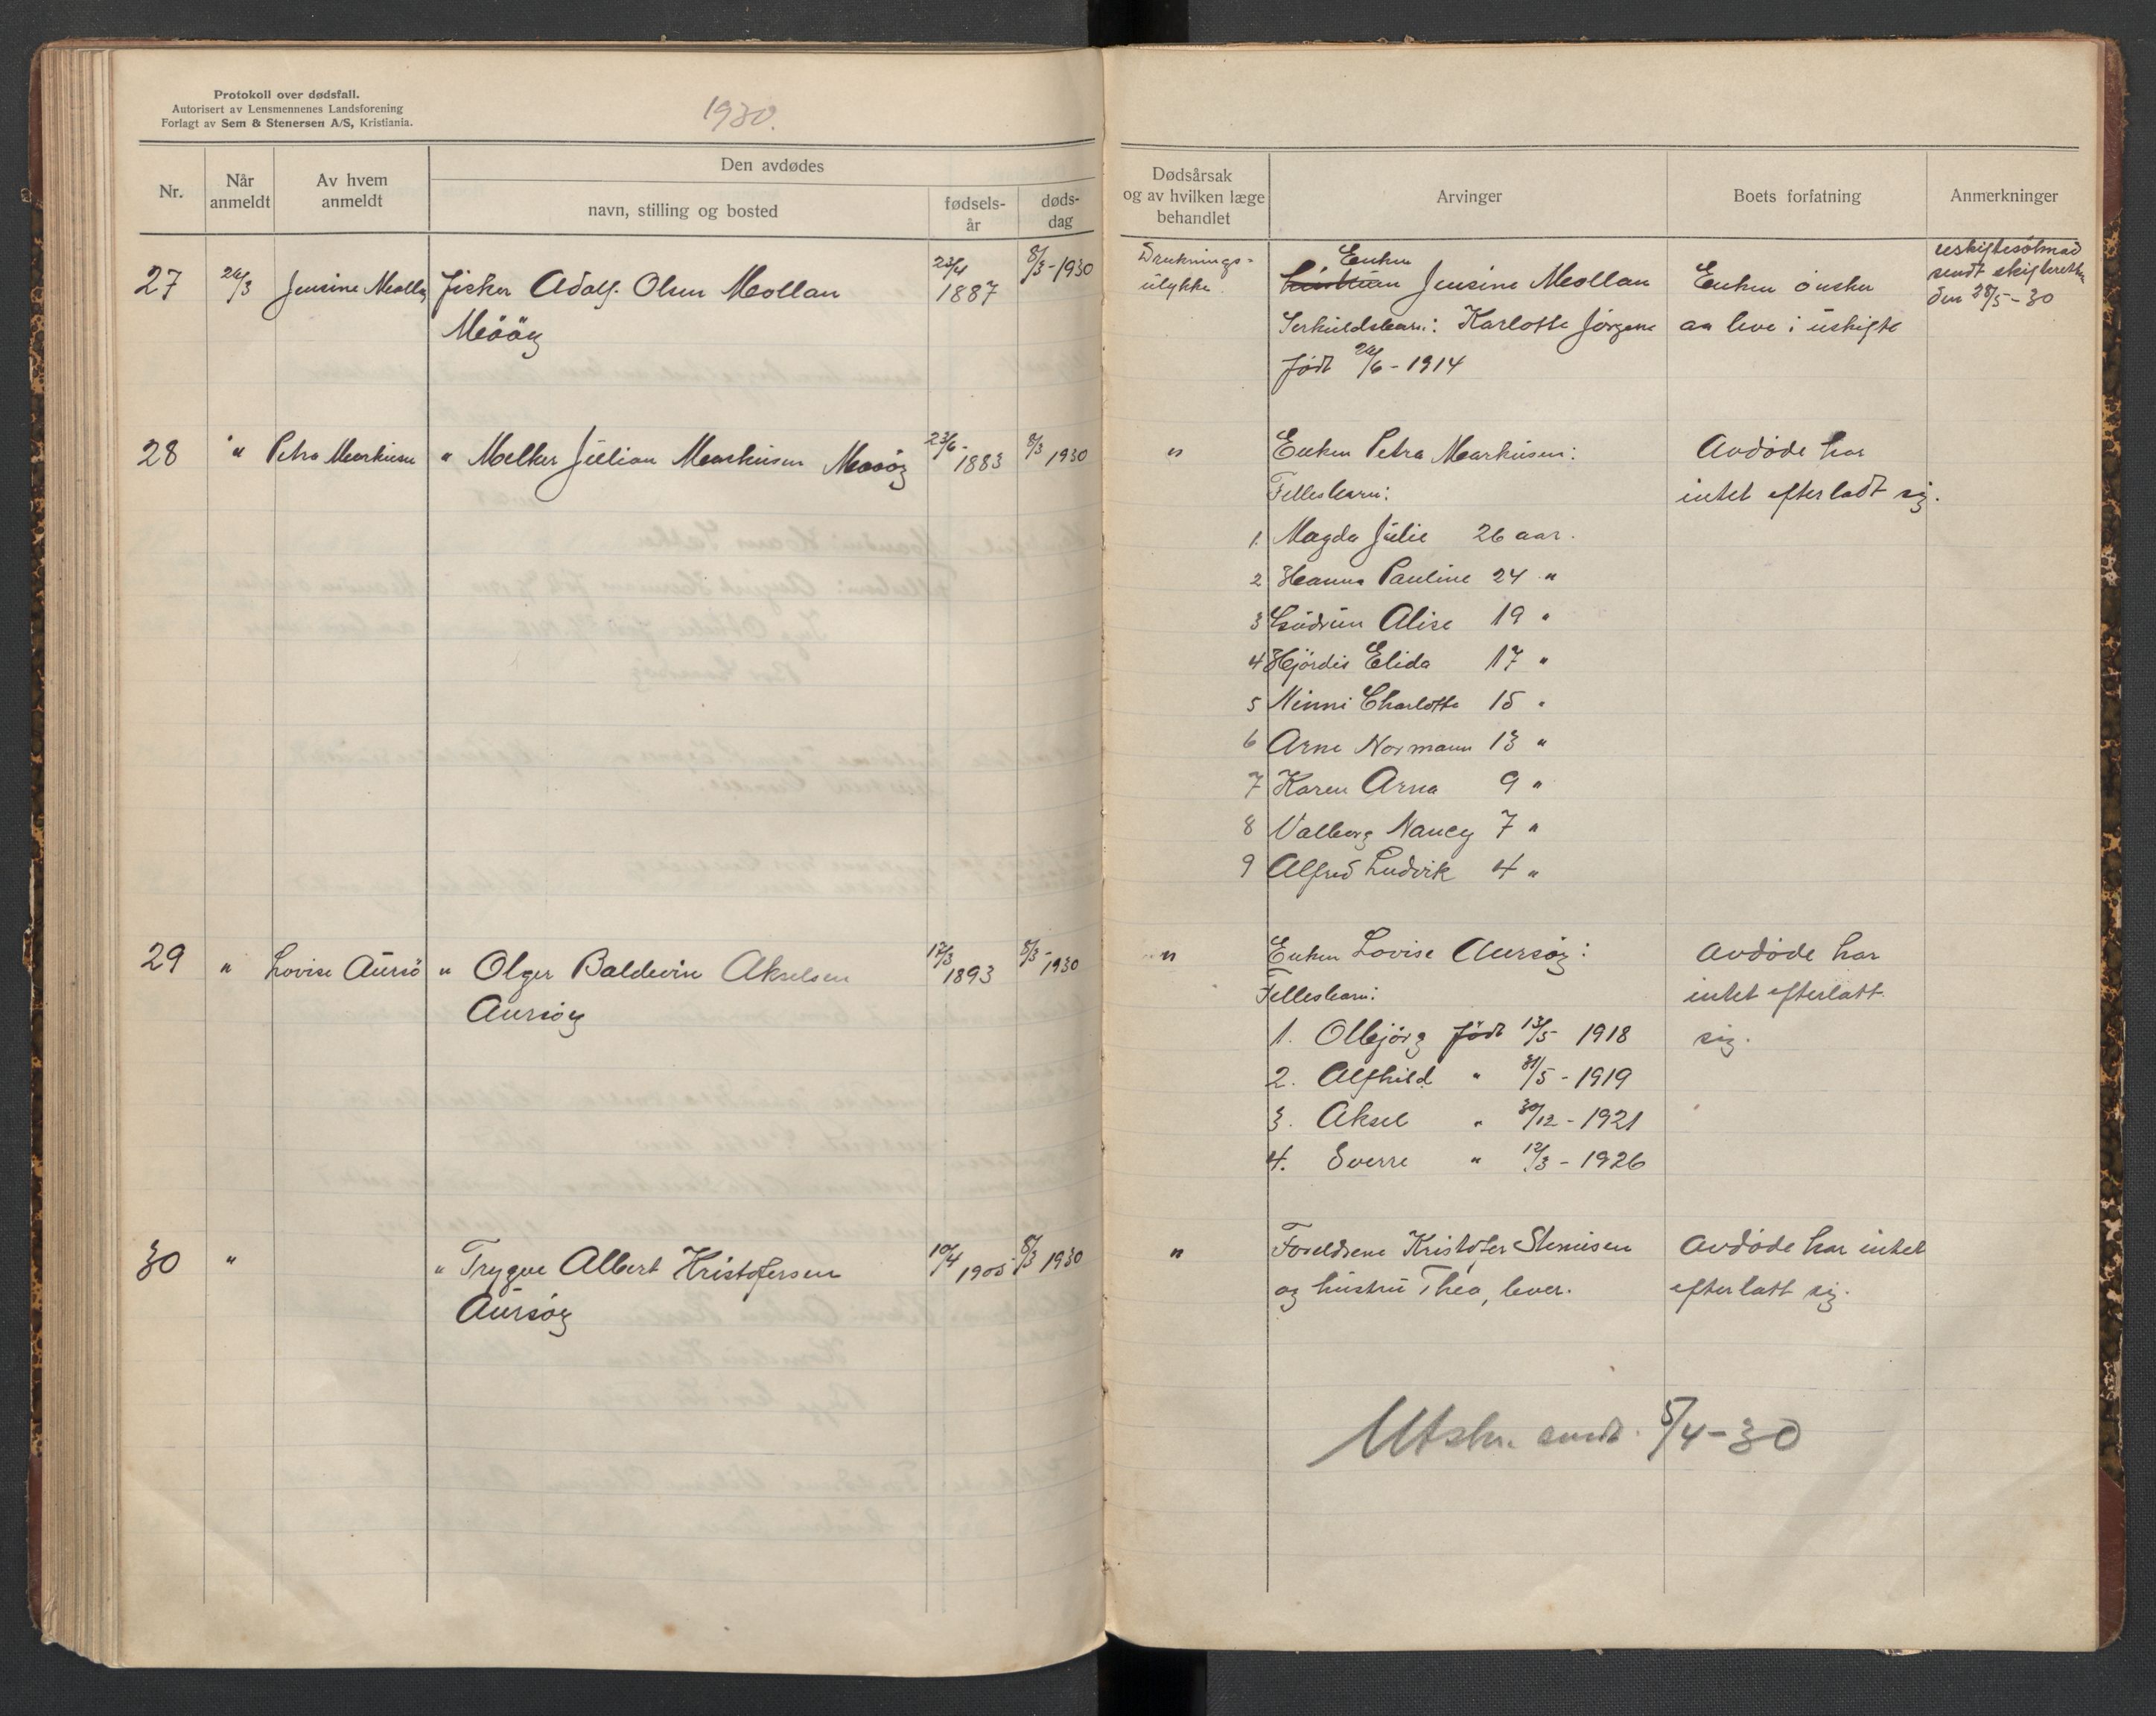 Protokoll over dødsfall.
Autorisert av Lensmennenes Landsforening
Forlagt av Sem & Stenersen A/S, Kristiania.
1930.
Nr.
Når anmeldt
Av hvem anmeldt
Den avdødes
navn, stilling og bosted
fødsels-
år
døds-
dag
Dødsårsak
og av hvilken læge
behandlet
Arvinger
Boets forfatning
Anmerkninger
27 24/3 Jensine Mollan Fisker Adolf Olsen Mollan 23/4 1887 8/3-1930
Druknings-
ulykke
Enken
Jensine Mollan
Særkuldsbarn: Karlotte Jørgine
født 24/6-1914
Enken ønsker
aa leve i uskifte
sendt skifteretten
den 28/5-30
28 " Petra Markusen " Melker Julian Markusen 23/6-1883 8/3 1930
"
Enken Petra Markusen:
Fellesbarn:
1. Magda Julie 26 aar.
2 Hanna Pauline 24 "
3 Gudrun Alise 19 "
4 Hjørdis Elida 17 "
5 Minni Charlotte 15 "
6 Arne Normann 13 "
7 Karen Arna 9 "
8 Valborg Nancy 7 "
9 Alfred Ludvik 4 "
Avdøde har
intet efterladt sig.
29 " Lovise Aursø " Olger Baldevin Akselsen 17/3 1893 8/3-1930
Aursøy
"
Enken Lovise Aursøy:
Fellesbarn:
1. Olbjørg født 13/5 1918
2. Alfhild " 31/5-1919
3. Aksel " 30/12-1921
4. Sverre " 12/3-1926
Avdøde har
intet efterlatt
sig.
30 " " Trygve Albert Kristofersen 10/4 1905 8/3 1930
Aursøy
"
Foreldrene Kristofer
og hustru Thea, lever.
Avdøde har intet
efterlatt sig.
Utskr. sendt. 5/4-30